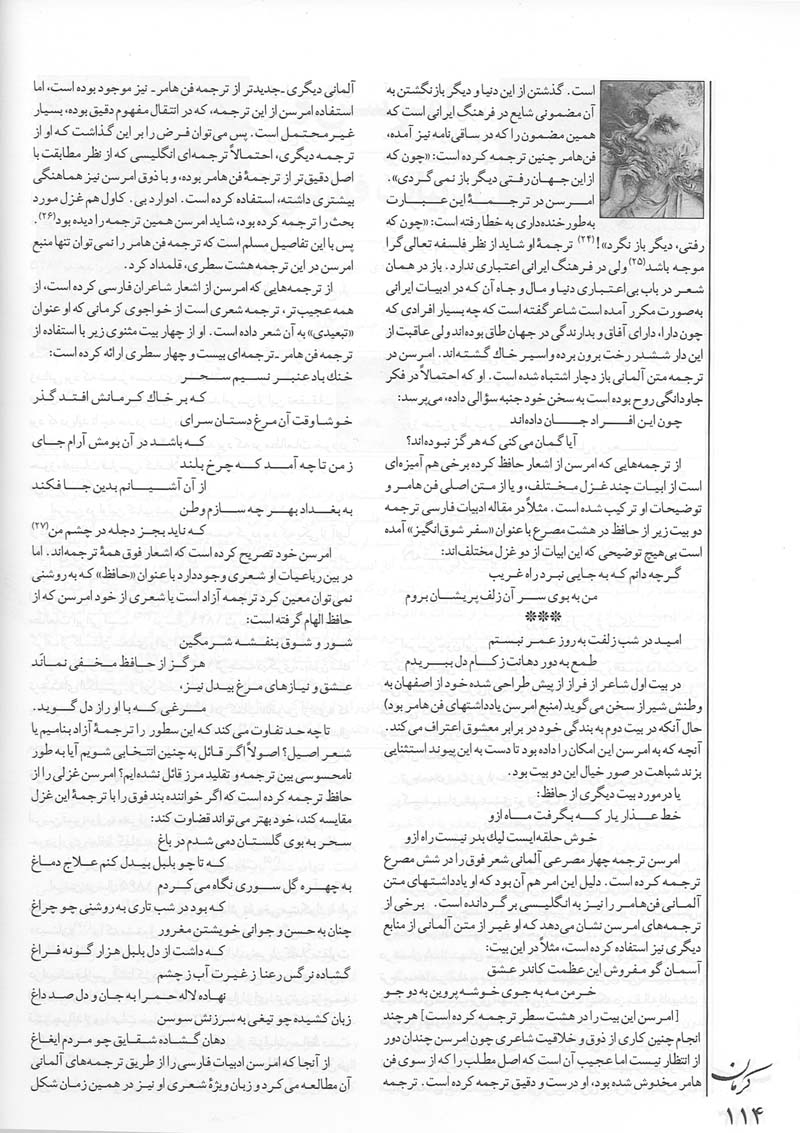 است. گذشتن از این دنیا و دیگر بازنگشتن به
آن مضمونی شایع در فرهنگ ایرانی است که
همین مضمون را که در ساقی‌نامه نیز آمده،
فن‌هامر چنین ترجمه کرده است: «چون که
از این جهان رفتی دیگر باز نمی گردی».
امرسن در ترجمهٔ این عبارت
به‌طور خنده‌داری به خطا رفته است: «چون که
رفتی، دیگر باز نگرد»!(۲۴) ترجمهٔ او شاید از نظر فلسفه تعالی گرا
موجه باشد(۲۵) ولی در فرهنگ ایرانی اعتباری ندارد. باز در همان
شعر در باب بی‌اعتباری دنیا و مال و جاه آن که در ادبیات ایرانی
به‌صورت مکرر آمده است شاعر گفته است که چه بسیار افرادی که
چون دارا، دارای آفاق و بدارندگی در جهان طاق بوده‌اند ولی عاقبت از
این دار ششدر رخت برون برده و اسیر خاک گشته‌اند. امرسن در
ترجمه متن آلمانی باز دچار اشتباه شده است. او که احتمالاً در فکر
جاودانگی روح بوده است به سخن خود جنبه سؤالی داده، می‌پرسد:
چون این افراد جان داده‌اند
آیا گمان می‌کنی که هرگز نبوده‌اند؟
از ترجمه‌هایی که امرسن از اشعار حافظ کرده برخی هم آمیزه‌ای
است از ابیات چند غزل مختلف، و یا از متن اصلی فن هامر و
توضیحات او ترکیب شده است. مثلاً در مقاله ادبیات فارسی ترجمه
دو بیت زیر از حافظ در هشت مصرع با عنوان «سفر شوق‌انگیز» آمده
است بی‌هیچ توضیحی که این ابیات از دو غزل مختلف‌اند:
گرچه دانم که به جایی نبرد راه غریب
من به بوی سر آن زلف پریشان بروم
***
امید در شب زلفت به روز عمر نبستم
طمع به دور دهانت ز کام دل ببریدم
در بیت اول شاعر از فراز از پیش طراحی شده خود از اصفهان به
وطنش شیراز سخن می‌گوید (منبع امرسن یادداشتهای فن هامر بود)
حال آنکه در بیت دوم به بندگی خود در برابر معشوق اعتراف می کند.
آنچه که به امرسن این امکان را داده بود تا دست به این پیوند استثنایی
بزند شباهت در صور خیال این دو بیت بود.
یا درمورد بیت دیگری از حافظ:
خط عذار یار که بگرفت ماه ازو
خوش حلقه‌ایست لیك بدر نیست راه ازو
امرسن ترجمه چهار مصرعی آلمانی شعر فوق را در شش مصرع
ترجمه کرده است. دلیل این امر هم آن بود که او یادداشتهای متن
آلمانی فن‌هامر را نیز به انگلیسی برگردانده است. برخی از
ترجمه‌های امرسن نشان می‌دهد که او غیر از متن آلمانی از منابع
دیگری نیز استفاده کرده است، مثلاً در این بیت:
آسمان گو مفروش این عظمت کاندر عشق
خرمن مه به جوی خوشه پروین به دو جو
[امرسن این بیت را در هشت سطر ترجمه کرده است] هر چند
انجام چنین کاری از ذوق و خلاقیت شاعری چون امرسن چندان دور
از انتظار نیست اما عجیب آن است که اصل مطلب را که از سوی فن
هامر مخدوش شده بود، او درست و دقیق ترجمه کرده است. ترجمه
آلمانی دیگری -جدیدتر از ترجمه فن هامر- نیز موجود بوده است، اما
استفاده امرسن از این ترجمه، که در انتقال مفهوم دقیق بوده، بسیار
غیرمحتمل است. پس می‌توان فرض را بر این گذاشت که او از
ترجمه دیگری، احتمالاً ترجمه‌ای انگلیسی که از نظر مطابقت با
اصل دقیق‌تر از ترجمهٔ فن هامر بوده، و با ذوق امرسن نیز هماهنگی
بیشتری داشته، استفاده کرده است. ادوارد بی. کاول هم غزل مورد
بحث را ترجمه کرده بود، شاید امرسن همین ترجمه را دیده بود(۲۶).
پس با این تفاصیل مسلم است که ترجمه فن هامر را نمی‌توان تنها منبع
امرسن در این ترجمه هشت سطری، قلمداد کرد.
از ترجمه‌هایی که امرسن از اشعار شاعران فارسی کرده است، از
همه عجیب‌تر، ترجمه شعری است از خواجوی کرمانی که او عنوان
«تبعیدی» به آن شعر داده است. او از چهار بیت مثنوی زیر با استفاده از
ترجمه فن‌هامر ـ ترجمه‌ای بیست و چهار سطری ارائه کرده است:
خنك باد عنبر نسیم سحر
که بر خاك کرمانش افتد گذر
خوشا وقت آن مرغ دستان سرای
که باشد در آن بومش آرام جای
ز من تا چه آمد که چرخ بلند
از آن آشیانم بدین جا فکند
به بغداد بهر چه سازم وطن
که ناید بجز دجله در چشم من(۲۷)
امرسن خود تصریح کرده است که اشعار فوق همهٔ ترجمه‌اند. اما
در بین رباعیات او شعری وجود دارد با عنوان «حافظ» که به روشنی
نمی‌توان معین کرد ترجمه آزاد است یا شعری از خود امرسن که از
حافظ الهام گرفته است:
شور و شوق بنفشه شرمگین
هرگز از حافظ مخفی نماند
عشق و نیازهای مرغ بیدل نیز،
مرغی که با او راز دل گوید.
تا چه حد تفاوت می کند که این سطور را ترجمهٔ آزاد بنامیم یا
شعر اصیل؟ اصولاً اگر قائل به چنین انتخابی شویم آیا به طور
نامحسوسی بین ترجمه و تقلید مرز قائل نشده‌ایم؟ امرسن غزلی را از
حافظ ترجمه کرده است که اگر خواننده بند فوق را با ترجمهٔ این غزل
مقایسه کند، خود بهتر می‌تواند قضاوت کند:
سحر به بوی گلستان دمی شدم در باغ
که تا چو بلبل بیدل کنم علاج دماغ
به چهره گل سوری نگاه می کردم
که بود در شب تاری به روشنی چو چراغ
چنان به حسن و جوانی خویشتن مغرور
که داشت از دل بلبل هزار گونه فراغ
گشاده نرگس رعنا ز غیرت آب ز چشم
نهاده لاله حمرا به جان و دل صد داغ
زبان کشیده چو تیغی به سرزنش سوسن
دهان گشاده شقایق چو مردم ایغاغ
از آنجا که امرسن ادبیات فارسی را از طریق ترجمه‌های آلمانی
آن مطالعه می‌کرد و زبان ویژهٔ شعری او نیز در همین زمان شکل
کرمان
۱۱۴